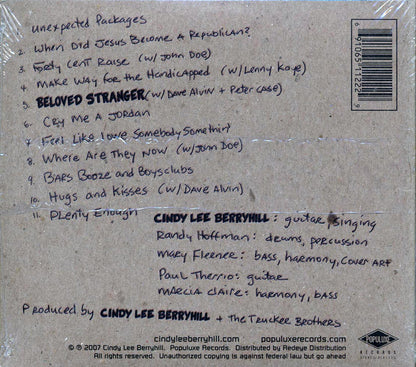 unexpected Packages
2. When Did Jesus Become A Republican?
3. Forty Cent Raise (w/ John Doe)
4. MAKE WAY for the HANDicapped (w/ Lenny Kaye)
5. BELOVED STRANGER (w/ Dave Alvin + Peter Case)
6. CRY ME A JORDAN
7. Feel Like Love Somebody Somethin'
8. Where Are They Now (w/ John Doe)
9. BARS BOOZE and BOYSCLUBS
10. Hugs and Kisses (w/ Dave Alvin)
11. Plenty Enough
CINDY LEE BERRYHILL: guitar, singing
Randy Hoffman: drums, percussion
Mary Fleener: bass, harmony, cover ART
Paul Therrio: guitar
MARCIA Claire: harmony, bass
Produced by CINDY LEE BERRYHILL + the Trucker Brothers
cindyleeberryhill.com populuxerecords.com
℗ © 2007 Cindy Lee Berryhill. Populuxe Records. Distributed by Redeye Distribution
All rights reserved. Unauthorized copying is against federal law but go ahead
POPULUXE
RECORDS
6 91065 11222 9